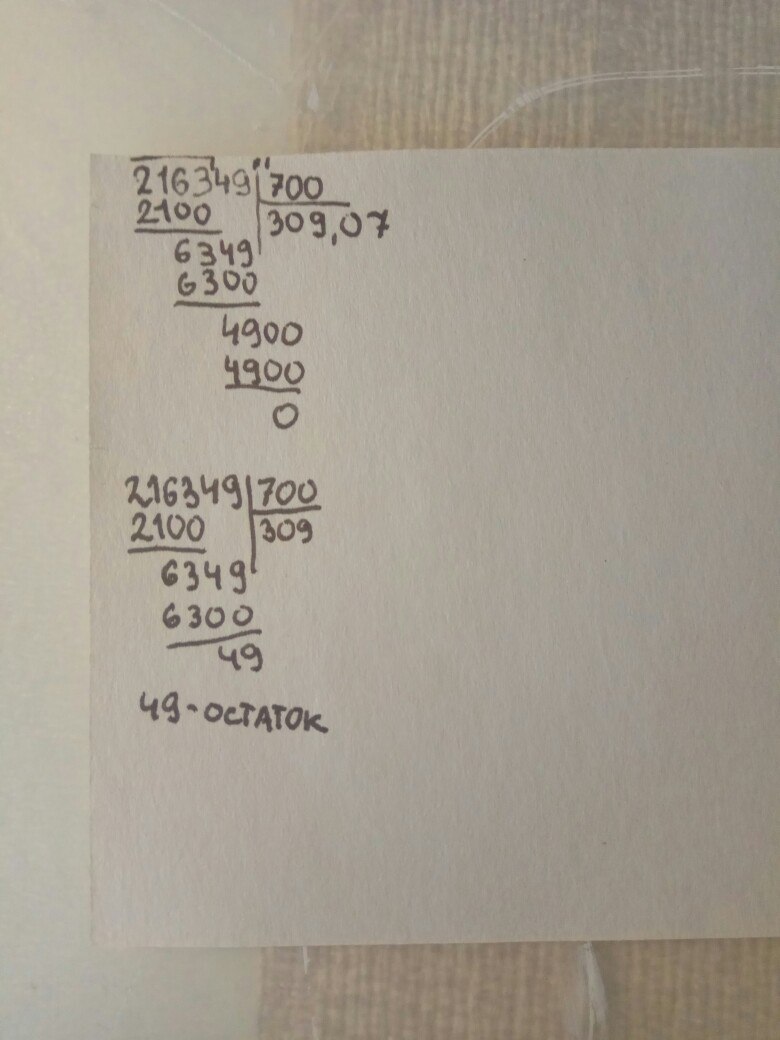 216349 700
2100 309,07
6349
6300
4900
4900
0
216349 700
2100 309
6349
6300
49
49-остаток